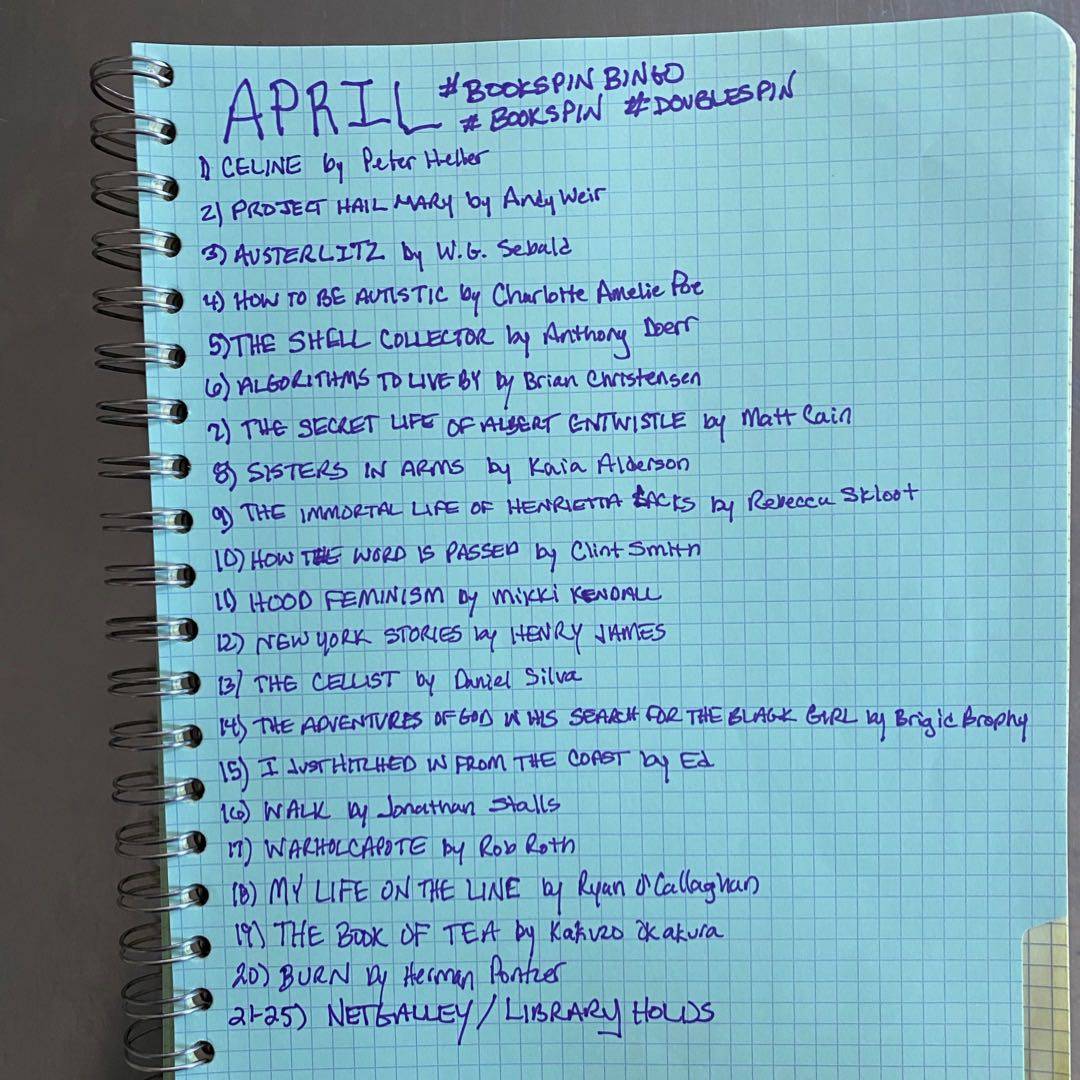 APRIL #BOOKSPINBINGO
#BOOKSPIN #DOUBLESPIN
1) CELINE by Peter Heller
2) PROJECT HAIL MARY by Andy Weir
3) AUSTERLITZ by W.G. Sebald
4) HOW TO BE AUTISTIC by Charlotte Amelie Poe
5) THE SHELL COLLECTOR by Anthony Doerr
6) ALGORITHMS TO LIVE BY by Brian Christensen
7) THE SECRET LIFE OF ALBERT ENTWISTLE by Matt Cain
8) SISTERS IN ARMS by Kaia Alderson
9) THE IMMORTAL LIFE OF HENRIETTA LACKS by Rebecca Skloot
10) HOW THE WORD IS PASSED by Clint Smith
11) HOOD FEMINISM by MIKKI KENDALL
12) NEW YORK STORIES by HENRY JAMES
13) THE CELLIST by Daniel Silva
14) THE ADVENTURES OF GOD IN HIS SEARCH FOR THE BLACK GIRL by Brigid Brophy
15) I JUST HITCHED IN FROM THE COAST by Ed
16) WALK by Jonathan Stalls
17) WARHOLCAPOTE by Rob Roth
18) MY LIFE ON THE LINE by Ryan O'Callaghan
19) THE BOOK OF TEA by Kakuzo Okakura
20) BURN by Herman Pontzer
21-25) NETGALLEY / LIBRARY HOLDS